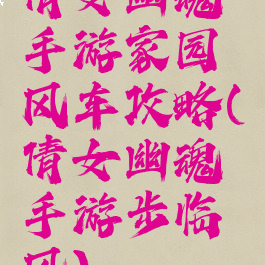 倩女幽魂
手游家园
风车攻略(
倩女幽魂
手游步临
风)